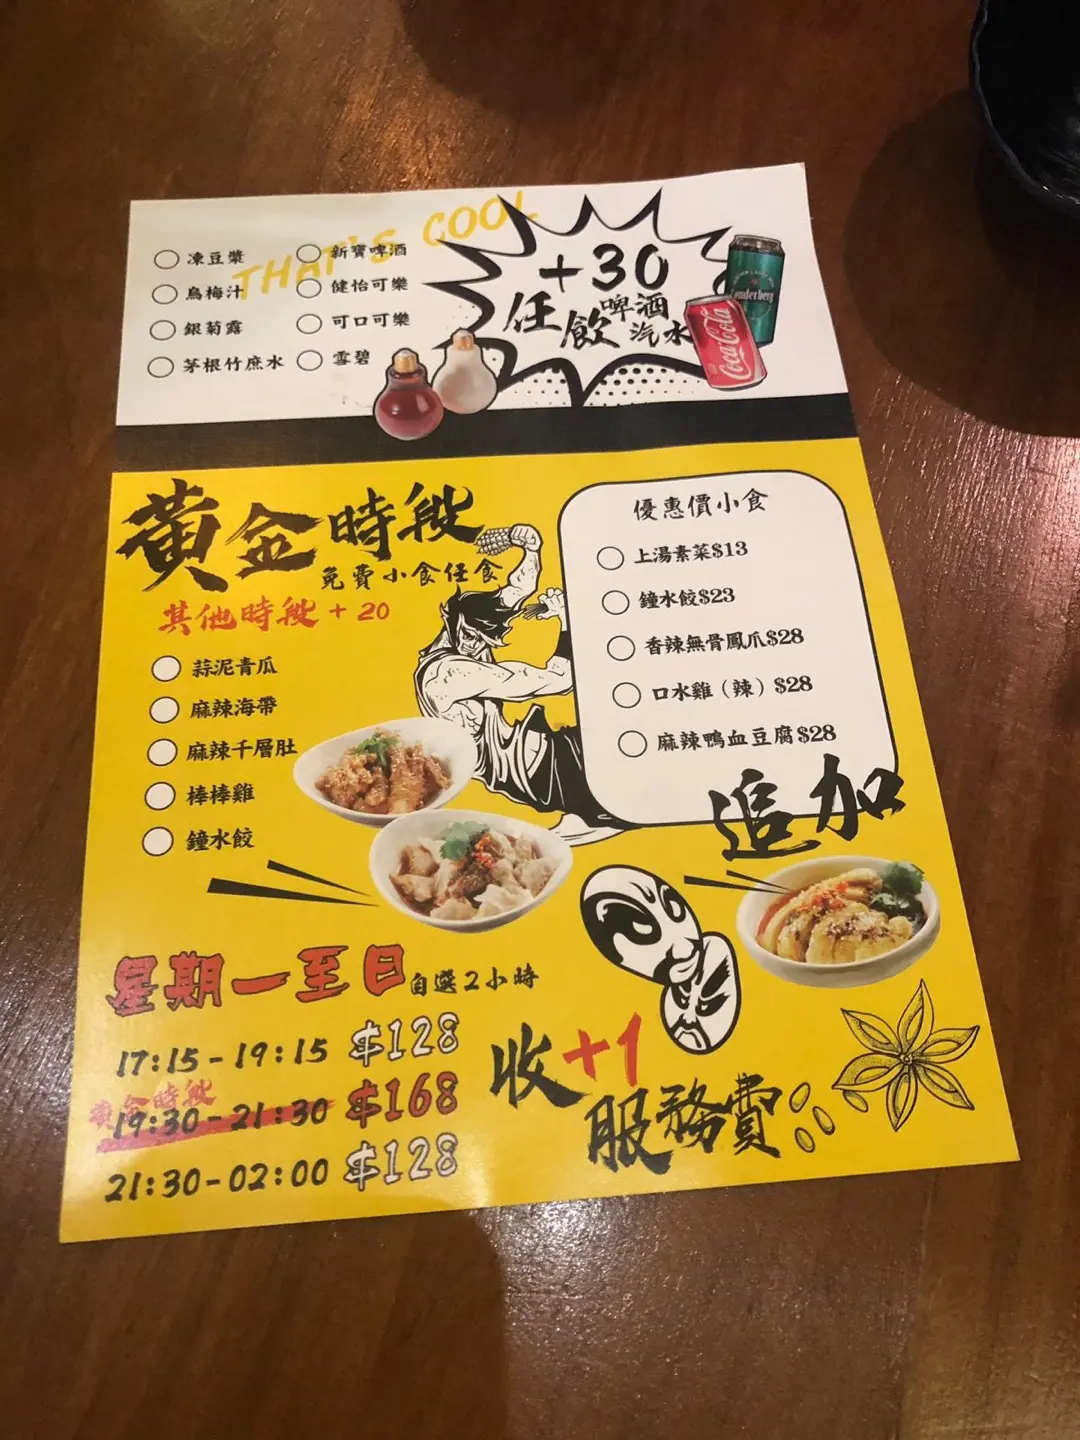 THAT'S COOL
凍豆漿
烏梅汁
銀菊露
茅根竹庶水
新寶啤酒
健怡可樂
可口可樂
雪碧
+30
任飲啤酒汽水
onderberg
Coca-Cola
黃金時段
免費小食任食
其他時段 + 20
蒜泥青瓜
麻辣海帶
麻辣千層肚
棒棒雞
鐘水餃
優惠價小食
上湯素菜$13
鐘水餃$23
香辣無骨鳳爪$28
口水雞（辣）$28
麻辣鴨血豆腐$28
追加
星期一至日自選2小時
17:15-19:15 $128
黃金時段
19:30-21:30 $168
21:30-02:00 $128
收+1
服務費